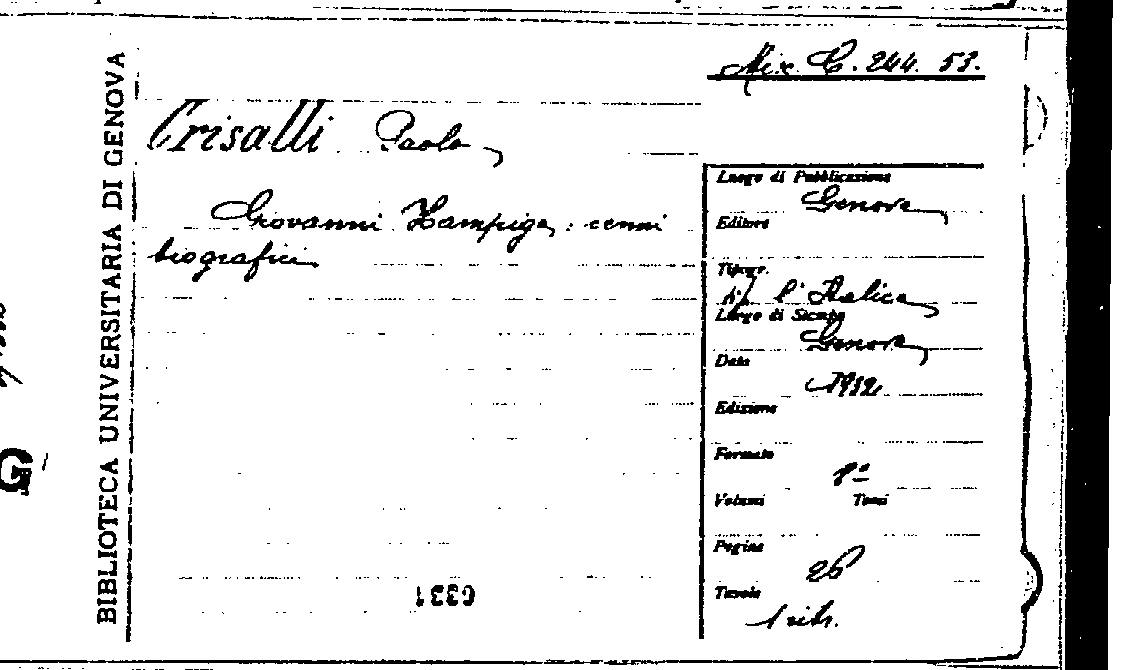 Mix. C. 244. 53.
Crisalli Paolo
Giovanni Hampiga: cenni
biografici
BIBLIOTECA UNIVERSITARIA DI GENOVA
Luogo di Pubblicazione
Genova
Editore
Tipogr.
l'Italica
Luogo di Stampa
Genova
Data
1932
Edizione
Formato
8º
Volumi Tomi
Pagine
26
Tavole
1 ritr.